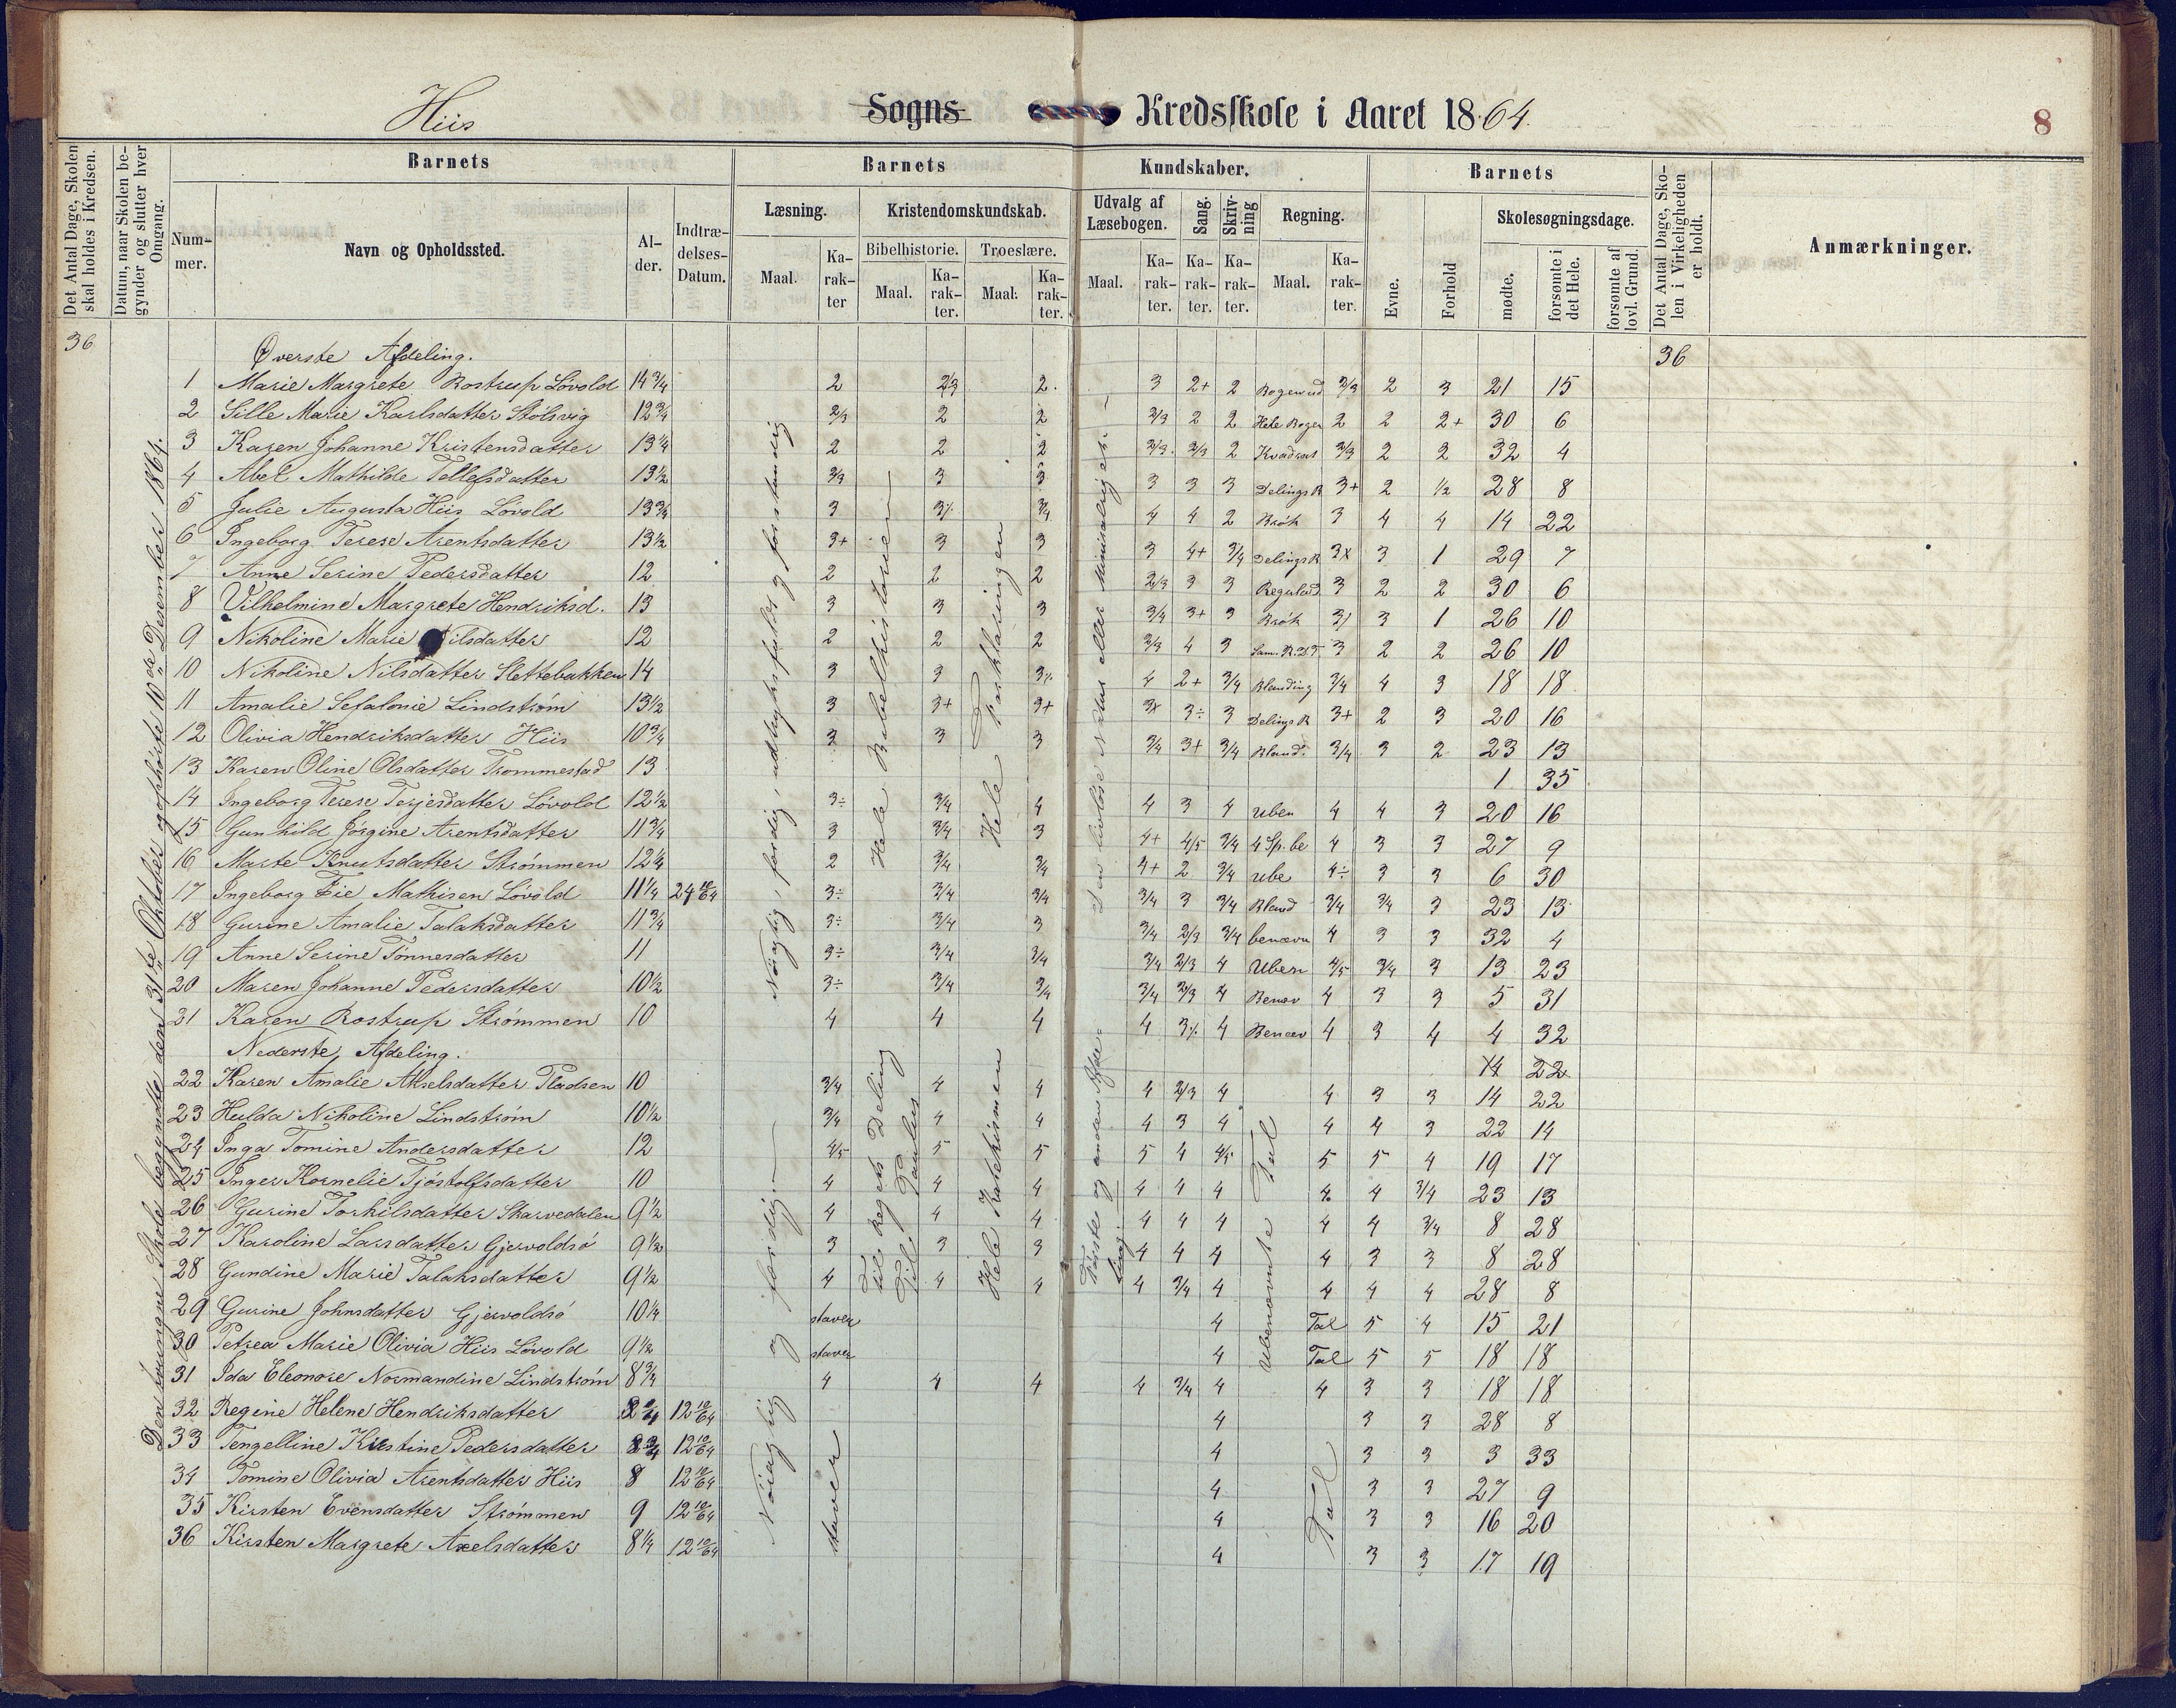 Hiis Sogns Kredsskole i Aaret 1864.
8
Det Antal Dage, Skolen skal holdes i Kredsen.
Datum, naar Skolen begynder og slutter hver Omgang.
Barnets
Nummer.
Navn og Opholdssted.
Alder.
Indtrædelses-Datum.
Barnets Kundskaber.
Læsning.
Maal.
Karakter
Kristendomskundskab.
Bibelhistorie.
Maal.
Karakter.
Troeslære.
Maal.
Karakter.
Udvalg af Læsebogen.
Maal.
Karakter.
Sang.
Karakter.
Skrivning
Karakter.
Regning.
Maal.
Karakter.
Barnets
Evne.
Forhold
Skolesøgningsdage.
mødte.
forsømte i det Hele.
forsømte af lovl. Grund.
Det Antal Dage, Skolen i Virkeligheden er holdt.
Anmærkninger.
36
36
Den tvungne Skole begyndte den 31te Oktober og ophørte 10de Desember 1864.
Nøiagtig, færdig, udtryksfuldt og forstandig
Hele Bibelhistorien
Hele Forklaringen
Øverste Afdeling.
1 Marie Margrete Rostrup Løvold 14 3/4 2 2/3 2. 3 2+ 2 2/3 2 3 21 15
2 Sille Marie Karlsdatter Stølsvig 12 3/4 2/3 2 2 2/3 2 2 Hele Bogen 2 2 2+ 30 6
3 Karen Johanne Kristensdatter 13 1/4 2 2 2 2/3 2/3 2 Kvadrat 2/3 2 2 32 4
4 Abel Mathilde Tellefsdatter 13 1/2 2/3 3 3 3 3 3 Delings R 3+ 2 1/2 28 8
5 Julie Augusta Hiis Løvold 13 3/4 3 3% 3/4 4 4 2 Brøk 3 4 4 14 22
6 Ingeborg Terese Arentsdatter 13 1/2 3+ 3 3 3 4+ 3/4 Delings R 3x 3 1 29 7
7 Anne Serine Pedersdatter 12 2 2 2 2/3 3 3 3 2 2 30 6
8 Vilhelmine Margrete Hendriksd. 13 3 3 3 3/4 3+ 3 Brøk 3 1 26 10
9 Nikoline Marie Nilsdatter 12 2 2 2 2/3 4 3 3 2 2 26 10
10 Nikoline Nilsdatter Slettebakken 14 3 3 3% 4 2+ 3/4 Blanding 3/4 4 3 18 18
11 Amalie Sefalonie Lindstrøm 13 1/2 3 3+ 3+ 3x 3÷ 3 Delings R 3+ 2 3 20 16
12 Olivia Hendriksdatter Hiis 10 3/4 3 3 3 3/4 3+ 3/4 Bland. 3/4 3 2 23 13
13 Karen Oline Olsdatter Trommestad 13 1 35
14 Ingeborg Terese Terjesdatter Løvold 12 1/2 3÷ 3/4 4 4 3 4 Uben 4 4 3 20 16
15 Gunhild Jørgine Arentsdatter 11 3/4 3 3/4 3 4+ 4/5 3/4 4 Sp. be 4 3 3 27 9
16 Marte Knutsdatter Strømmen 12 1/4 2 3/4 3/4 4+ 2 3/4 Ube 4÷ 3 3 6 30
17 Ingeborg Eie Mathisen Løvold 11 1/4 24 10/64 3÷ 3/4 3/4 3/4 3 3/4 Bland 3/4 3/4 3 23 13
18 Gurine Amalie Talaksdatter 11 3/4 3÷ 3/4 3 3/4 2/3 3/4 benævn 4 3 3 32 4
19 Anne Serine Tønnesdatter 11 3÷ 3/4 3/4 3/4 2/3 4 Uben 4/5 3/4 3 13 23
20 Maren Johanne Pedersdatter 10 1/2 3÷ 3/4 3/4 3/4 2/3 4 Benæv 4 3 3 5 31
21 Karen Rostrup Strømmen 10 4 4 4 4 3% 4 Benæv 4 3 4 4 32
Nederste Afdeling. 14 22
Nøiagtig og færdig.
Hele Katekismen
Første og anden Afdeling.
Ubenævnte Tal
22 Karen Amalie Akselsdatter Pladsen 10 3/4 4 4 4 2/3 4 4 3 3 14 22
23 Hulda Nikoline Lindstrøm 10 1/2 3/4 4 4 4 3 4 4 4 3 22 14
24 Inga Tomine Andersdatter 12 4/5 5 5 5 4 4/5 5 5 4 19 17
25 Inger Kornelie Tjøstolfsdatter 10 4 4 4 4 4 4 4 4 3/4 23 13
26 Gurine Torkilsdatter Skarvedalen 9 1/2 4 4 4 4 4 4 4 4 3/4 8 28
27 Karoline Larsdatter Gjervoldsø 9 1/2 3 3 3 4 4 4 4 3 3 8 28
28 Gundine Marie Talaksdatter 9 1/2 4 4 4 4 3/4 4 4 4 4 28 8
29 Gurine Johnsdatter Gjervoldsø 10 1/4 staver 4 Tal 5 4 15 21
30 Petrea Marie Olivia Hiis Løvold 9 1/2 staver 4 Tal 5 5 18 18
31 Ida Eleonore Normandine Lindstrøm 8 3/4 4 4 4 4 3/4 4 4 3 3 18 18
staver
Tal
32 Regine Helene Hendriksdatter 12 10/64 4 3 3 28 8
33 Tengelline Kirstine Pedersdatter 12 10/64 4 3 3 3 33
34 Tomine Olivia Arentsdatter Hiis 8 12 10/64 4 3 3 27 9
35 Kirsten Evensdatter Strømmen 9 12 10/64 4 3 3 16 20
36 Kirsten Margrete Axelsdatter 8 1/4 12 10/64 4 3 3 17 19